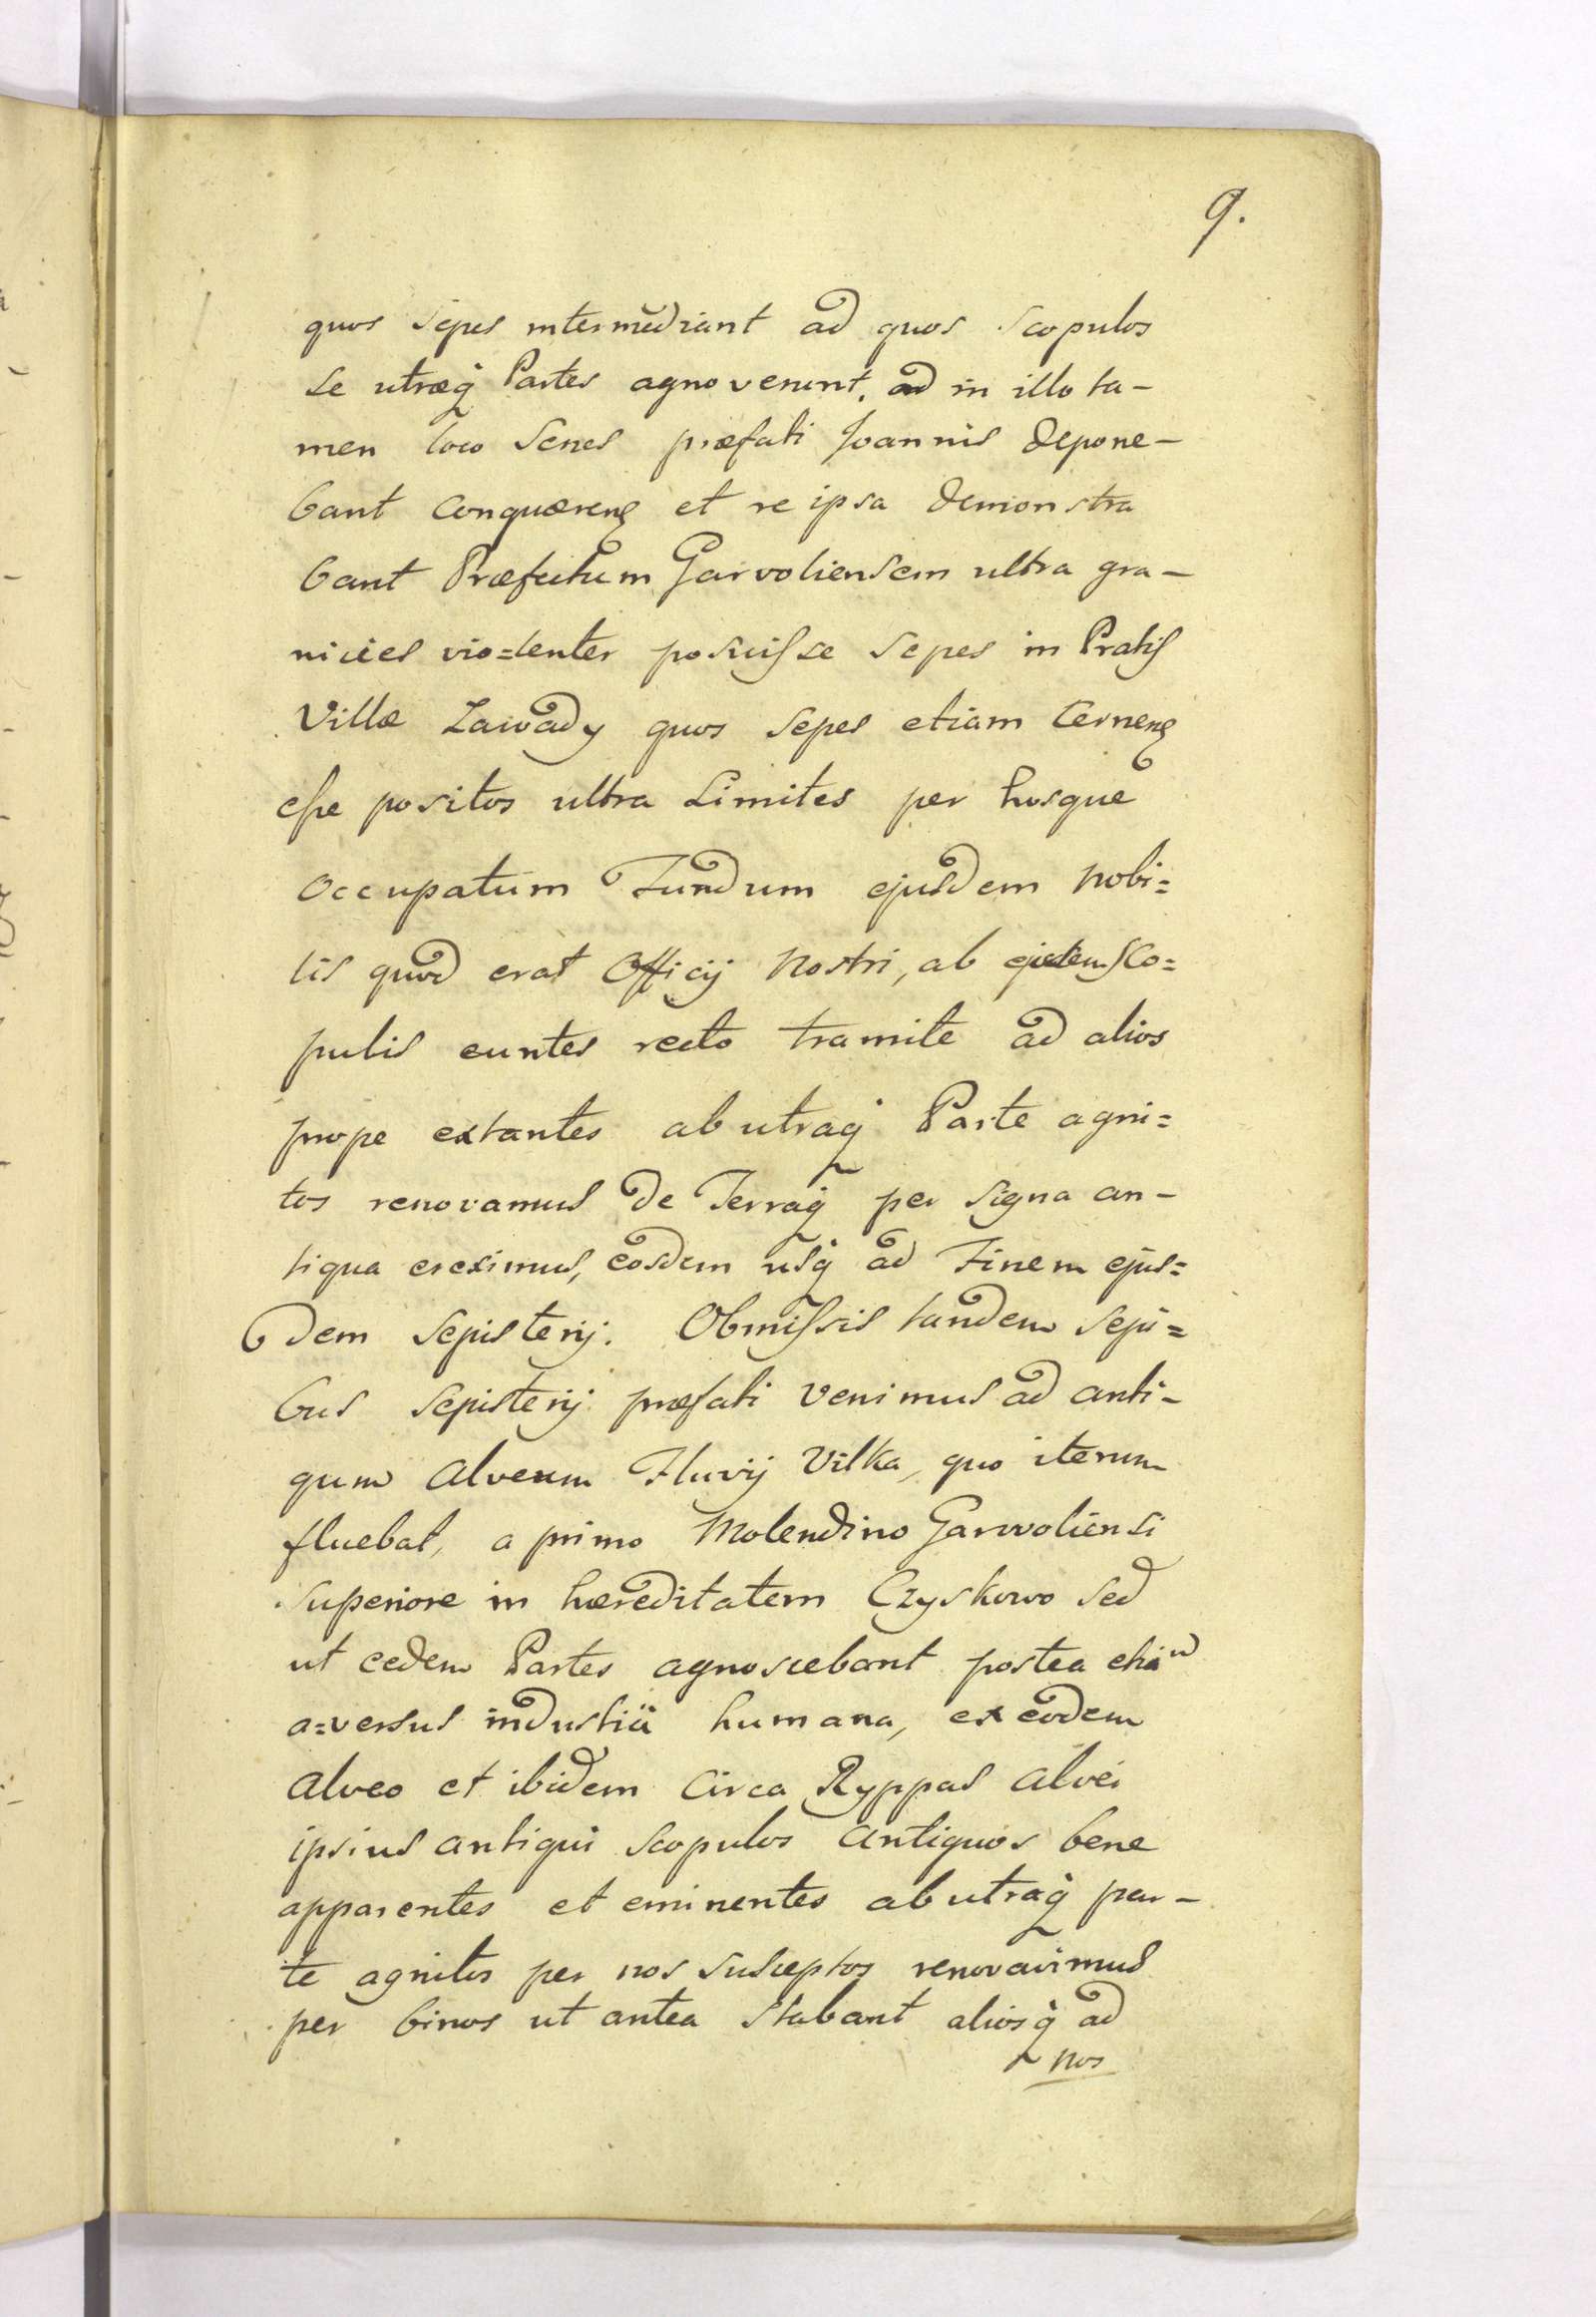 9.
quos sepes intermediant ad quos scopulos
se utræq́ Partes agnoverunt. ad in illo ta-
men loco Senes præfati Joannis depone-
bant conquæren͛ et re ipsa demonstra
bant Præfectum Garvoliensem ultra gra-
nicies vio=lenter posuisse sepes in Pratis
Villæ Zawady quos sepes etiam Cernen͛
esse positos ultra Limites per hosque
Occupatum Fundum ejusdem Nobi=
lis quod erat Officij Nostri, ab Sco=
pulis euntes recto tramite ad alios
prope extantes ab utraq́ Parte agni=
tos renovamus de Terraq́ per Signa an-
tiqua ereximus, eosdem usq́ ad Finem ejus=
dem Sepisterij. Obmissis tandem sepi=
bus Sepisterij præfati Venimus ad anti-
qum Alveum Fluvij Vilka, quo iterum
fluebat, a primo Molendino Garwoliensi
Superiore in hæreditatem Czyskowo sed
ut eedem Partes agnoscebant postea etiam
a=versus industriä humana, ex eodem
Alveo et ibidem Circa Ryppas Alvei
ipsius antiqui Scopulos Antiquos bene
apparentes et eminentes ab utraq́ par-
te agnitos per nos susceptos renovavimus
per binos ut antea stabant aliosq́ ad
nos